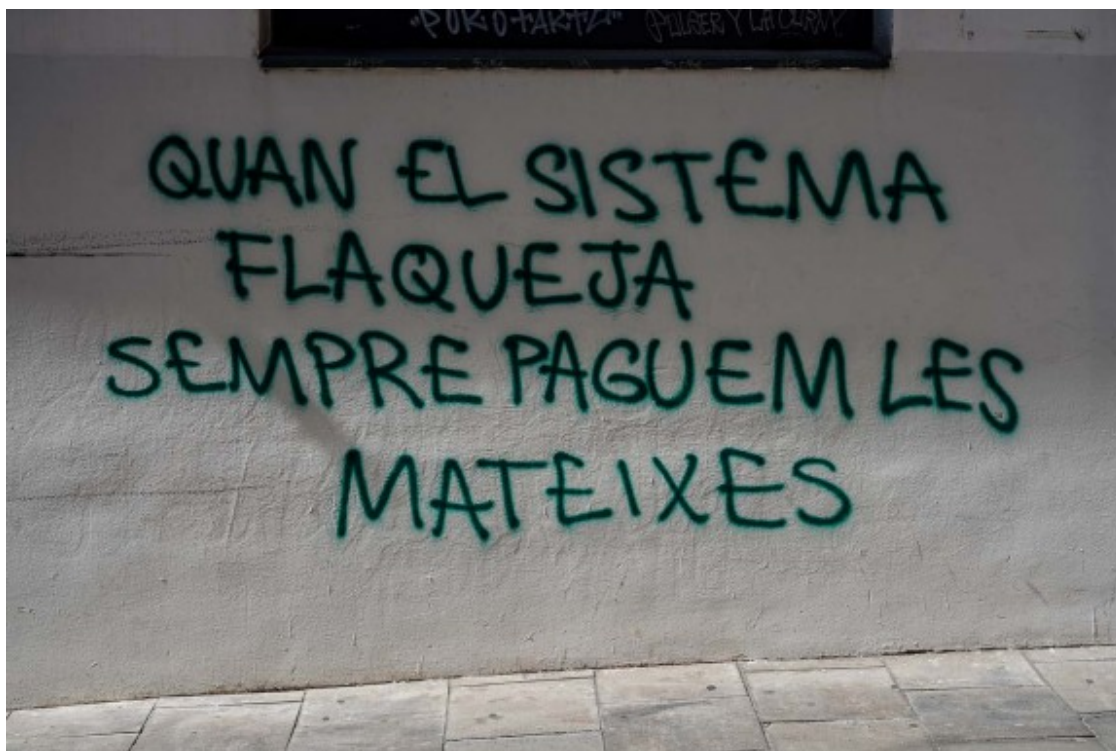 "PUROTARTZ"
QUAN EL SISTEMA
FLAQUEJA
SEMPRE PAGUEM LES
MATEIXES